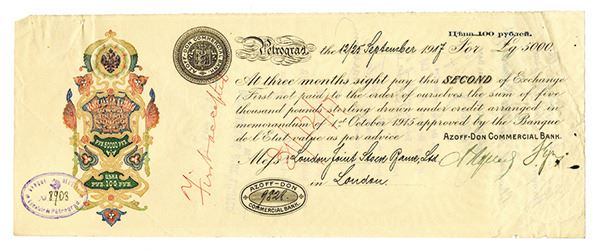 Цѣна 100 рублей.
Petrograd, the 12/25 September 1917 For £g 5000.
At three months sight pay this SECOND of Exchange
(First not paid to the order of ourselves the sum of five
thousand pounds sterling drawn under credit arranged in
memorandum of 1st October 1915 approved by the Banque
de l'Etat value as per advice
AZOFF-DON COMMERCIAL BANK.
Mess London Joint Stock Bank, Ltd.
in London.
AZOFF-DON
9828
COMMERCIAL BANK
First accepted
AZOFF-DON COMMERCIAL BANK
ЦѢНА
РУБ. 100 РУБ.
№ 8903